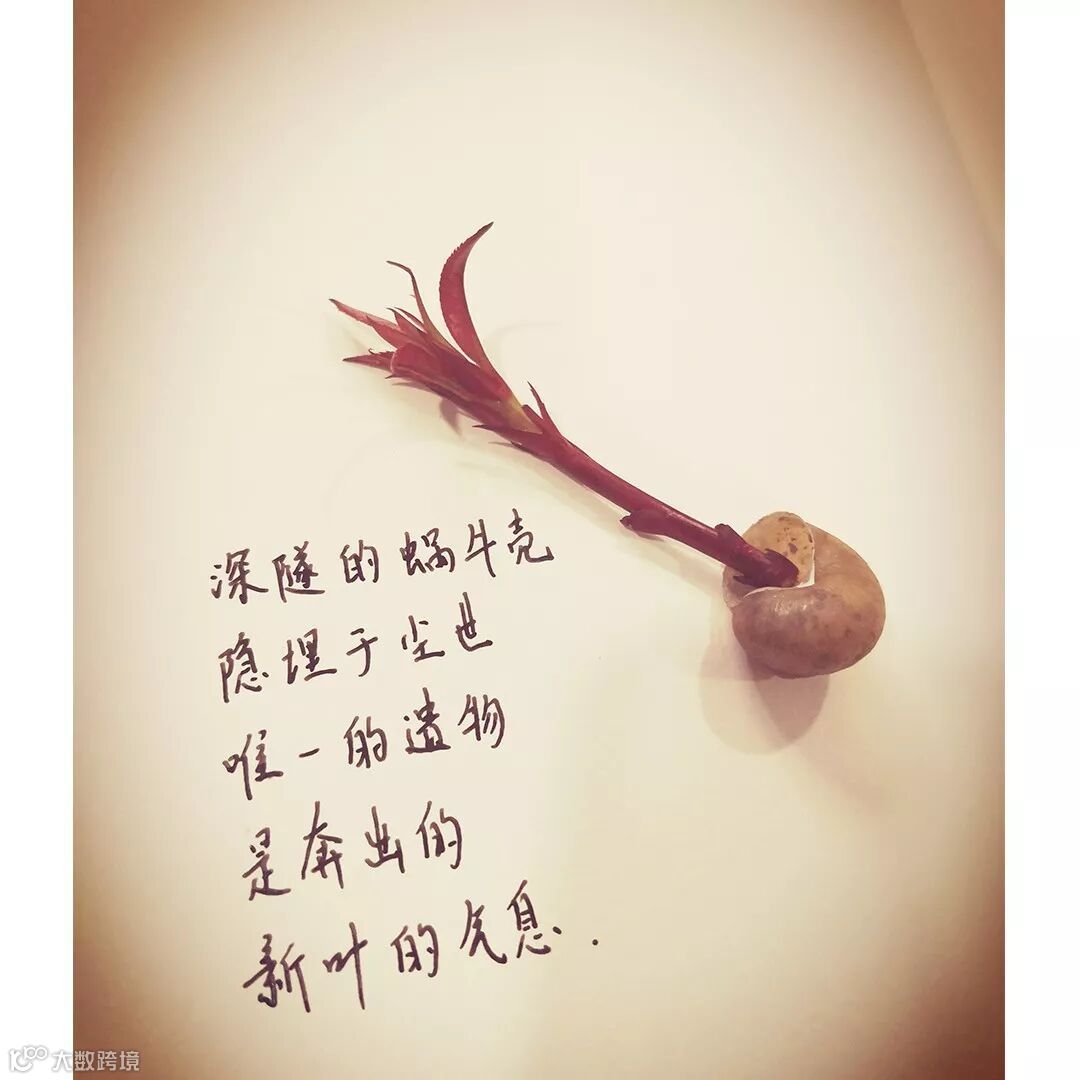 深隧的蜗牛壳
隐埋于尘世
唯一的遗物
是奔出的
新叶的气息.
大数跨境